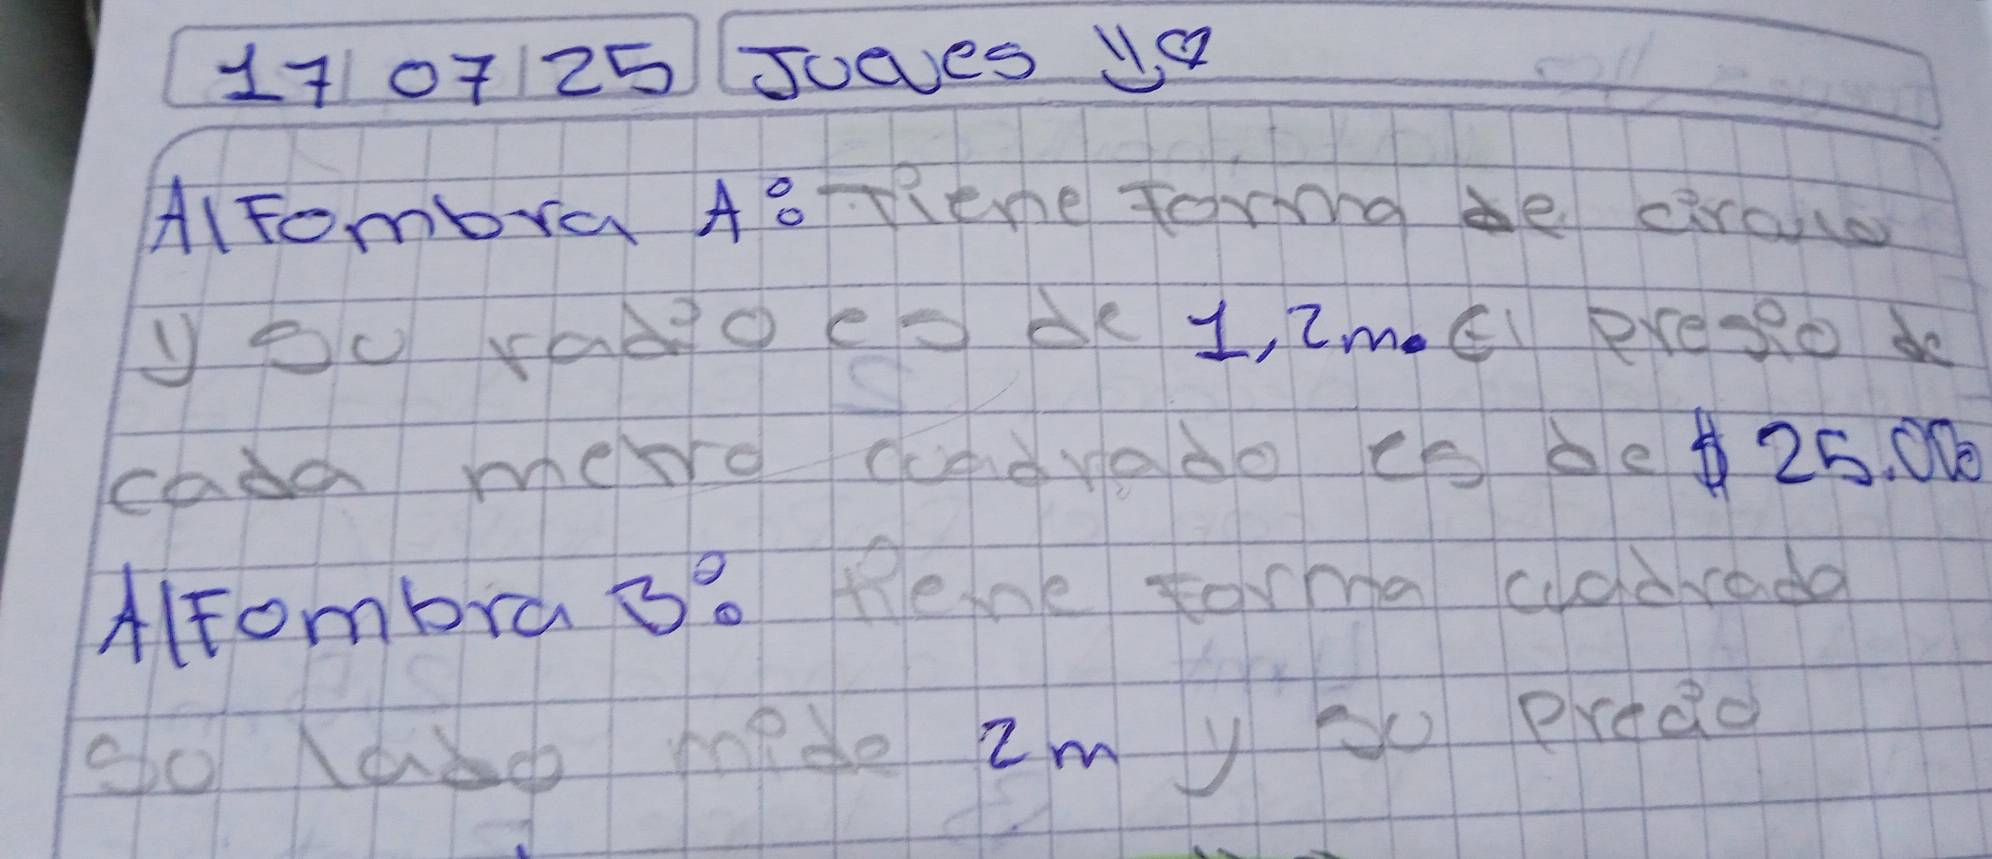 17/07/25 Jueves
Alfombra A: Tiene forma de circulo
y su radio es de 1,2m. El presio de
cada metro cuadrado es de $25.000
Alfombra B: tiene forma cuadrada
su lado mide 2m y su precio